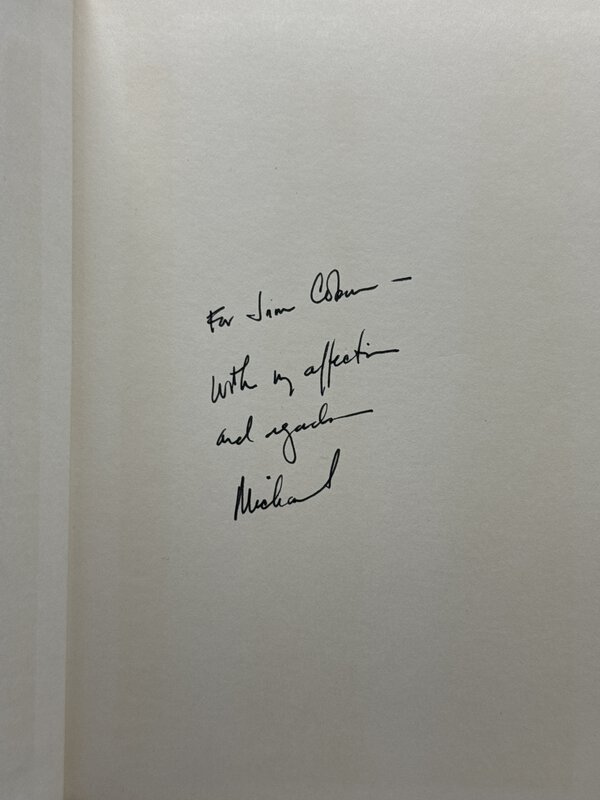 For Jim Coburn —
With my affection
and regards
Michael